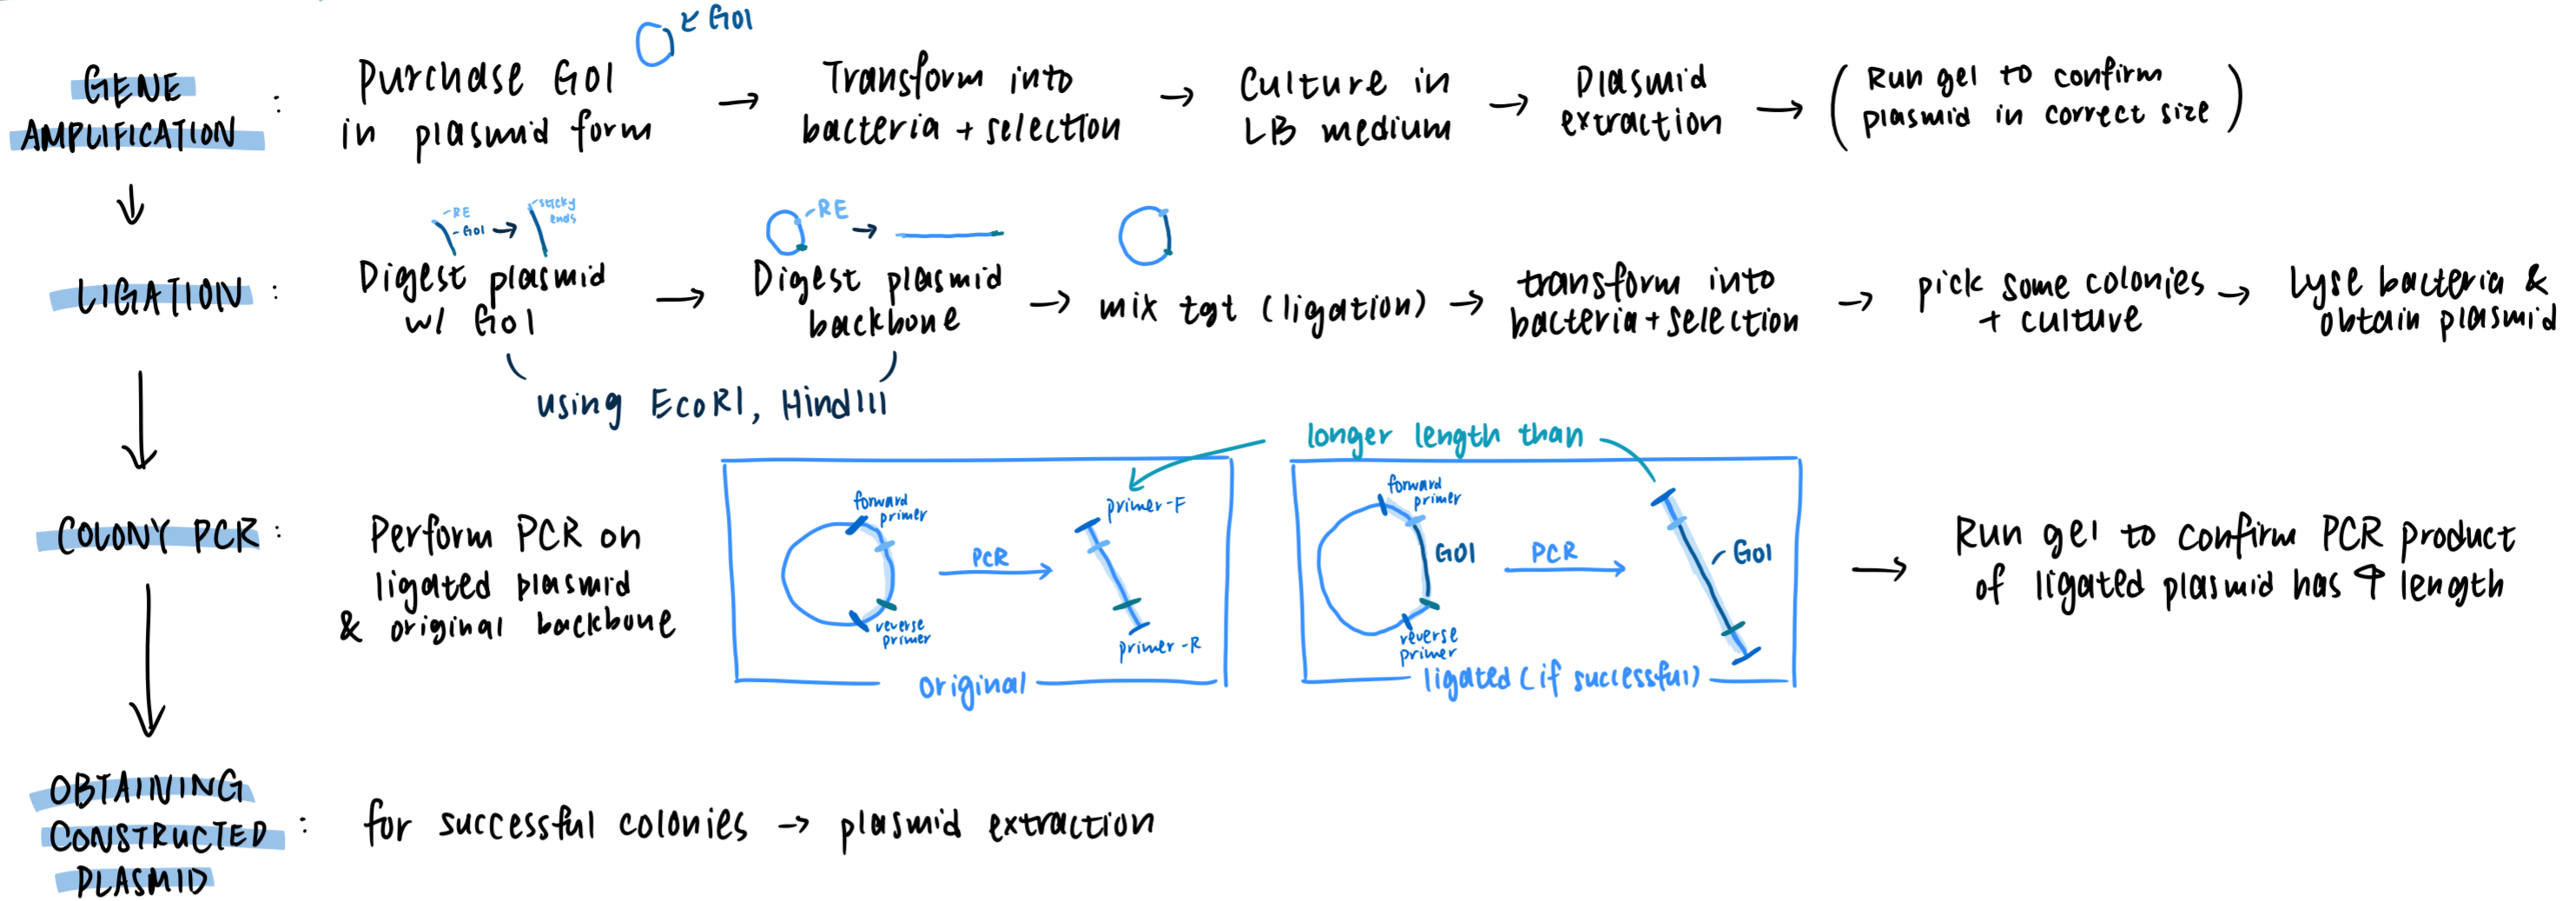 GENE
AMPLIFICATION :
Purchase GOI
in plasmid form
GOI
→ Transform into
bacteria + selection
→ Culture in
LB medium
→ Plasmid
extraction
→ ( Run gel to confirm
plasmid in correct size )
LIGATION :
RE
GOI
sticky
ends
Digest plasmid
w/ GOI
RE
→ Digest plasmid
backbone
using EcoRI, HindIII
→ mix tgt (ligation)
→ transform into
bacteria + selection
→ pick some colonies
+ culture
→ Lyse bacteria &
obtain plasmid
COLONY PCR :
Perform PCR on
ligated plasmid
& original backbone
longer length than
forward
primer
reverse
primer
PCR
primer-F
primer-R
original
forward
primer
GOI
reverse
primer
PCR
GOI
ligated (if successful)
→ Run gel to confirm PCR product
of ligated plasmid has ↑ length
OBTAINING
CONSTRUCTED :
PLASMID
for successful colonies → plasmid extraction